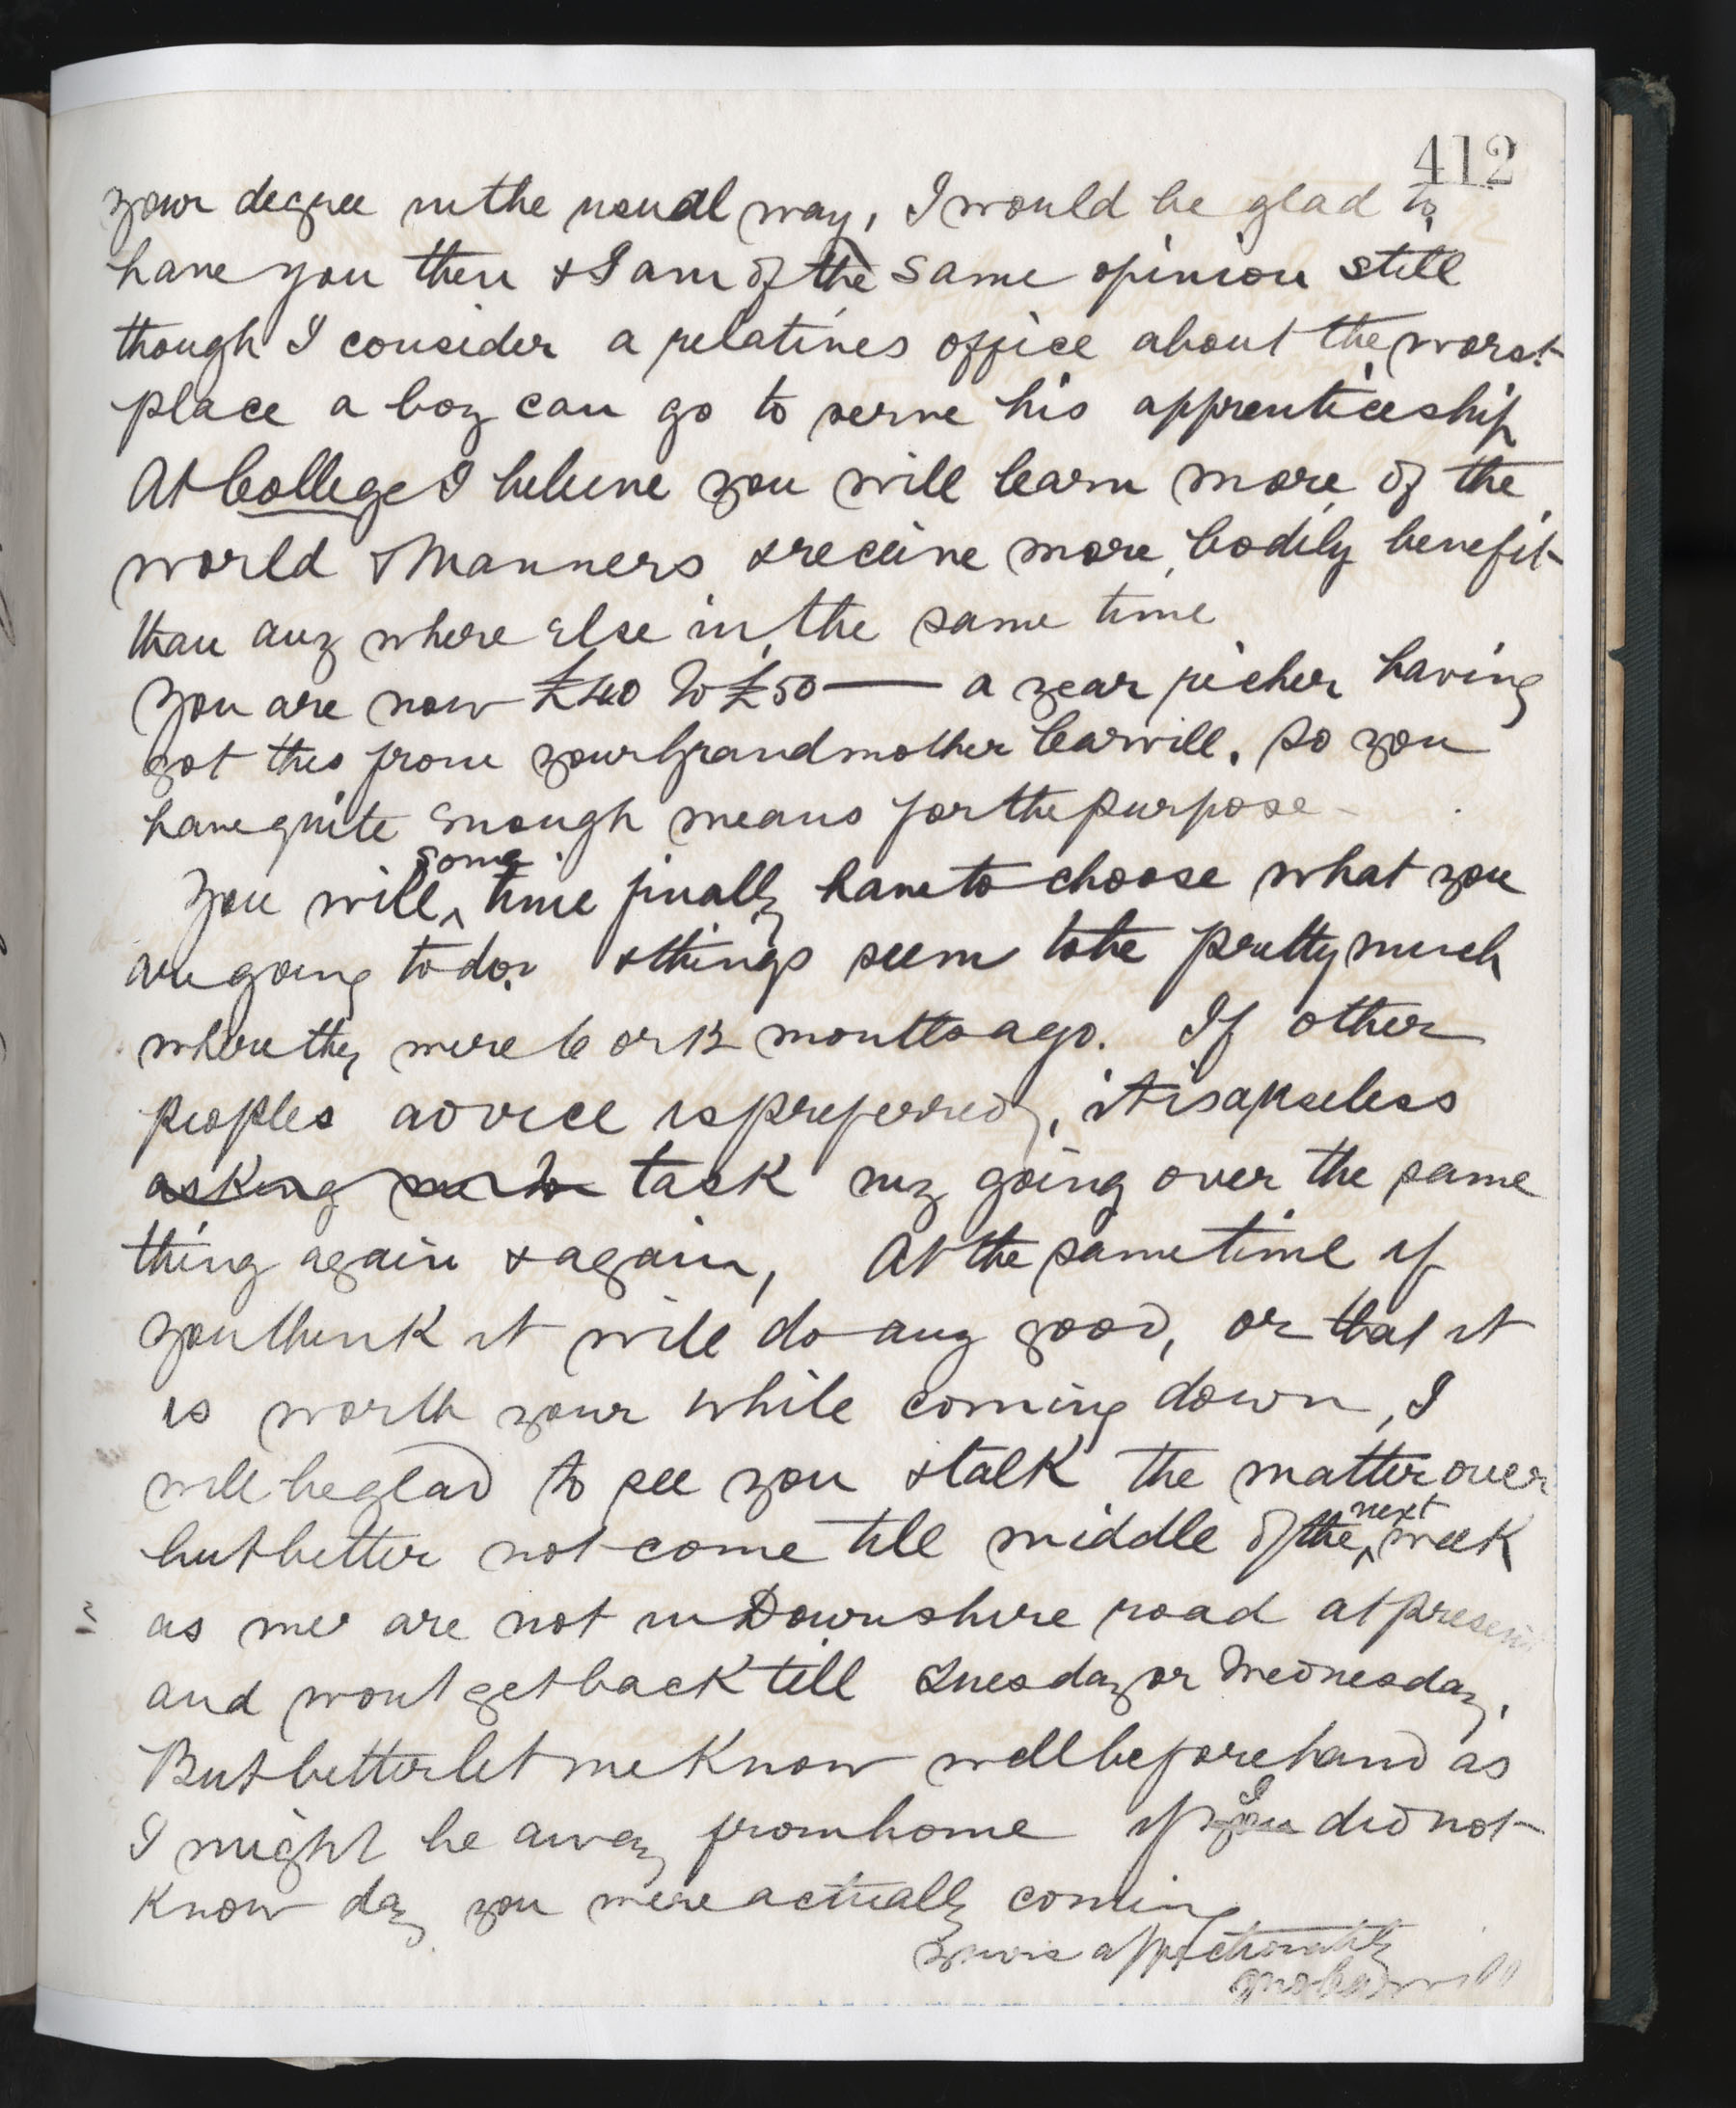 412
your degree in the usual way, I would be glad to
have you then & I am of the same opinion still
though I consider a relatives office about the worst
place a boy can go to serve his apprenticeship
At College I believe you will learn more of the
world & manners & receive more bodily benefit
than any where else in the same time
You are now £40 to £50 — a year richer having
got this from your Grandmother Carvill. So you
have quite enough means for the purpose -
You will some time finally have to choose what you
are going to do. & things seem to be pretty much
where they were 6 or 12 months ago. If other
peoples advice is preferred, it is a useless
asking me to task my going over the same
thing again & again, At the same time if
you think it will do any good, or that it
is worth your while coming down, I
will be glad to see you & talk the matter over
but better not come till middle of the next week
as we are not in Downshire road at present
and wont get back till Tuesday or Wednesday.
But better let me know well beforehand as
I might be away from home if you I did not
know day you were actually coming
Yours affectionately
Carvill